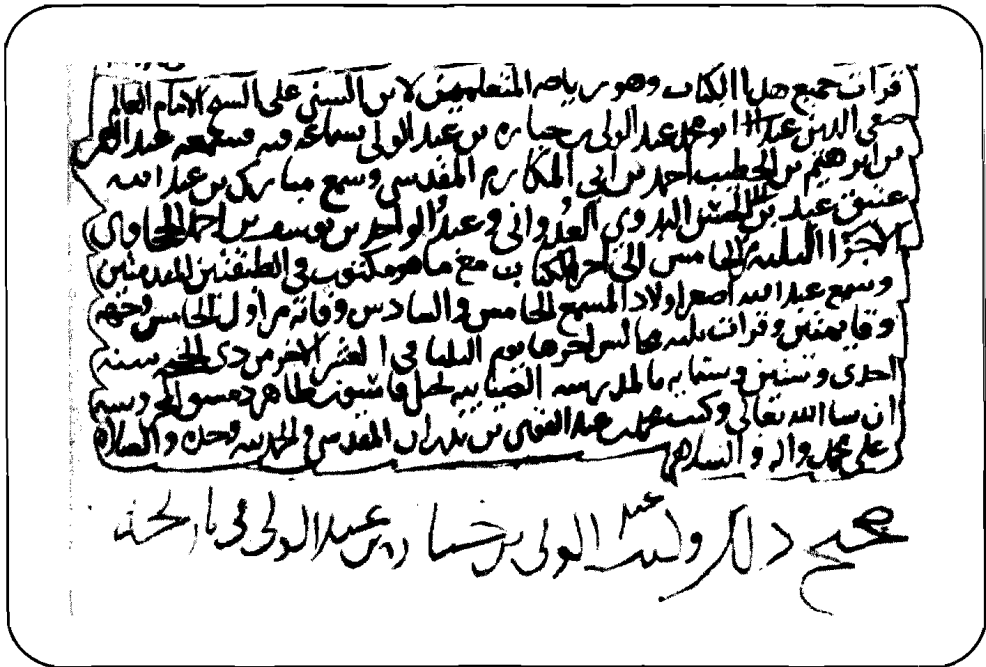 قرات جميع هذا الكتاب وهو رياضه المتعلمين لابن السني على الشيخ الامام العالم
صفي الدين عبد الله ابو محمد عبد الولي بن جباره بن عبد الولي بسماعه فيه وسمعه عبد
بن ابرهيم بن الخطيب احمد بن ابي المكارم المقدسي وسمع مبارك بن عبد الله
عتيق عبد بن البدوي العدواني وعبد الواحد بن يوسف بن احمد
الاجزا الثلثه الخامس الى اخر الكتاب مع ما هو مكتوب في الطبقتين المقدمتين
وسمع عبد الله اصغر اولاد المسمع الخامس والسادس وفاته من اول الخامس
وقايمتين وقرات ثلثه مجالس اخرها يوم الثلثا في العشر الاخر من ذي الحجه سنه
احدى وستين وستمايه بالمدرسه الضيائيه بجبل قاسيون ظاهر دمشق المحروسه
ان شا الله تعالى وكتب محمد بن عبد القوي بن بدران المقدسي والحمد لله وحده والصلاه
على محمد واله والسلام
صحيح ذلك وكتب عبد الولي بن جباره بن عبد الولي في تاريخه